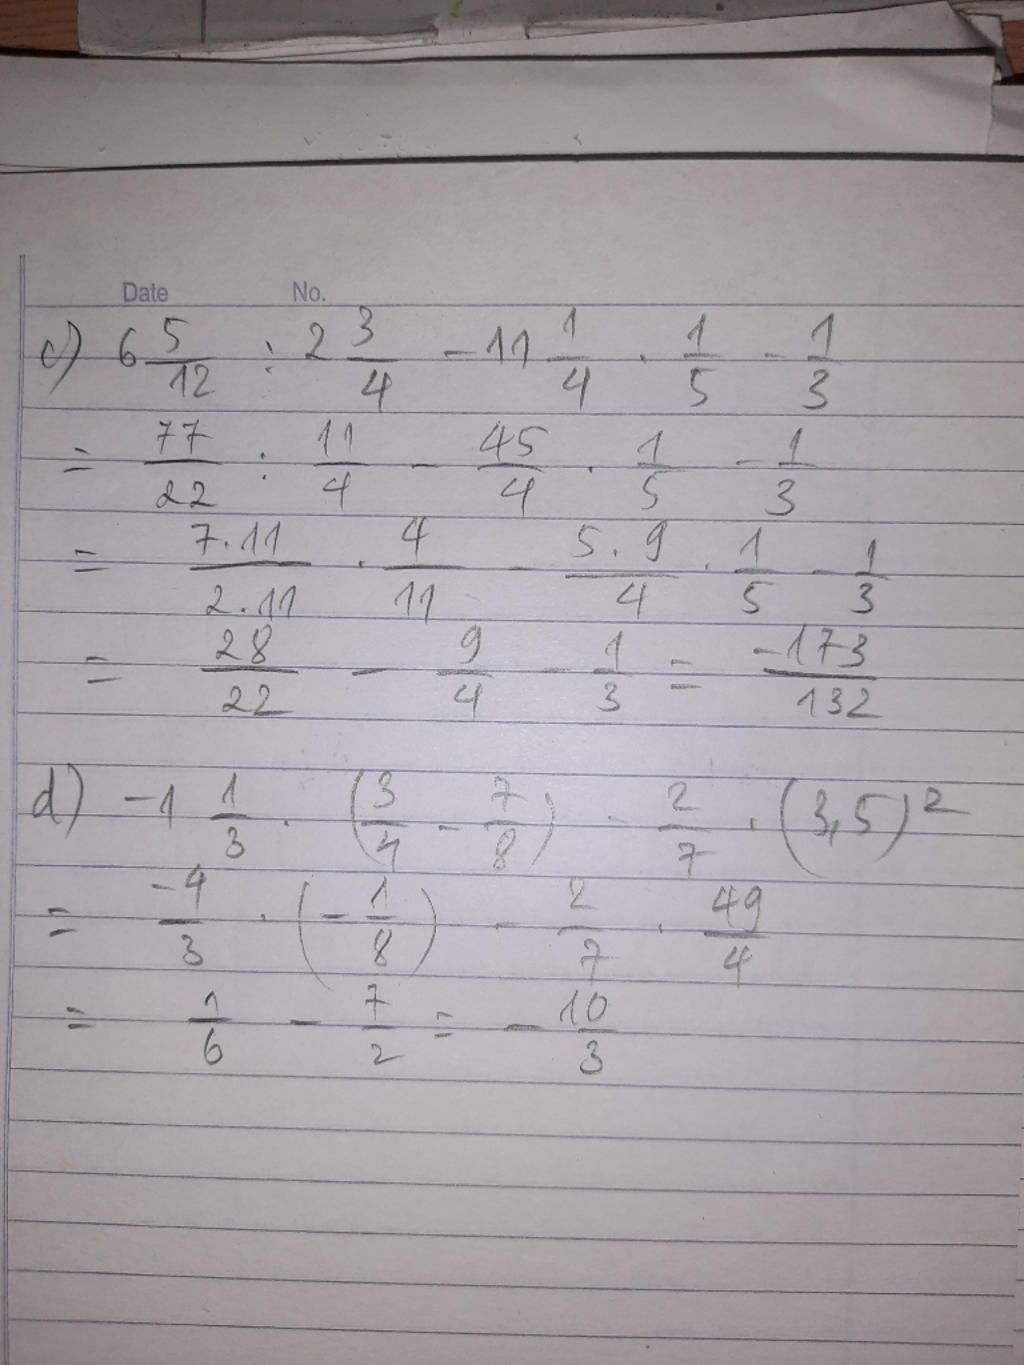 Date No.
c) 6 5/12 : 2 3/4 - 11 1/4 . 1/5 - 1/3
= 77/22 : 11/4 - 45/4 . 1/5 - 1/3
= 7.11/2.11 . 4/11 - 5.9/4 . 1/5 - 1/3
= 28/22 - 9/4 - 1/3 = -173/132
d) -1 1/3 . (3/4 - 7/8) - 2/7 . (3,5)²
= -4/3 . (-1/8) - 2/7 . 49/4
= 1/6 - 7/2 = -10/3